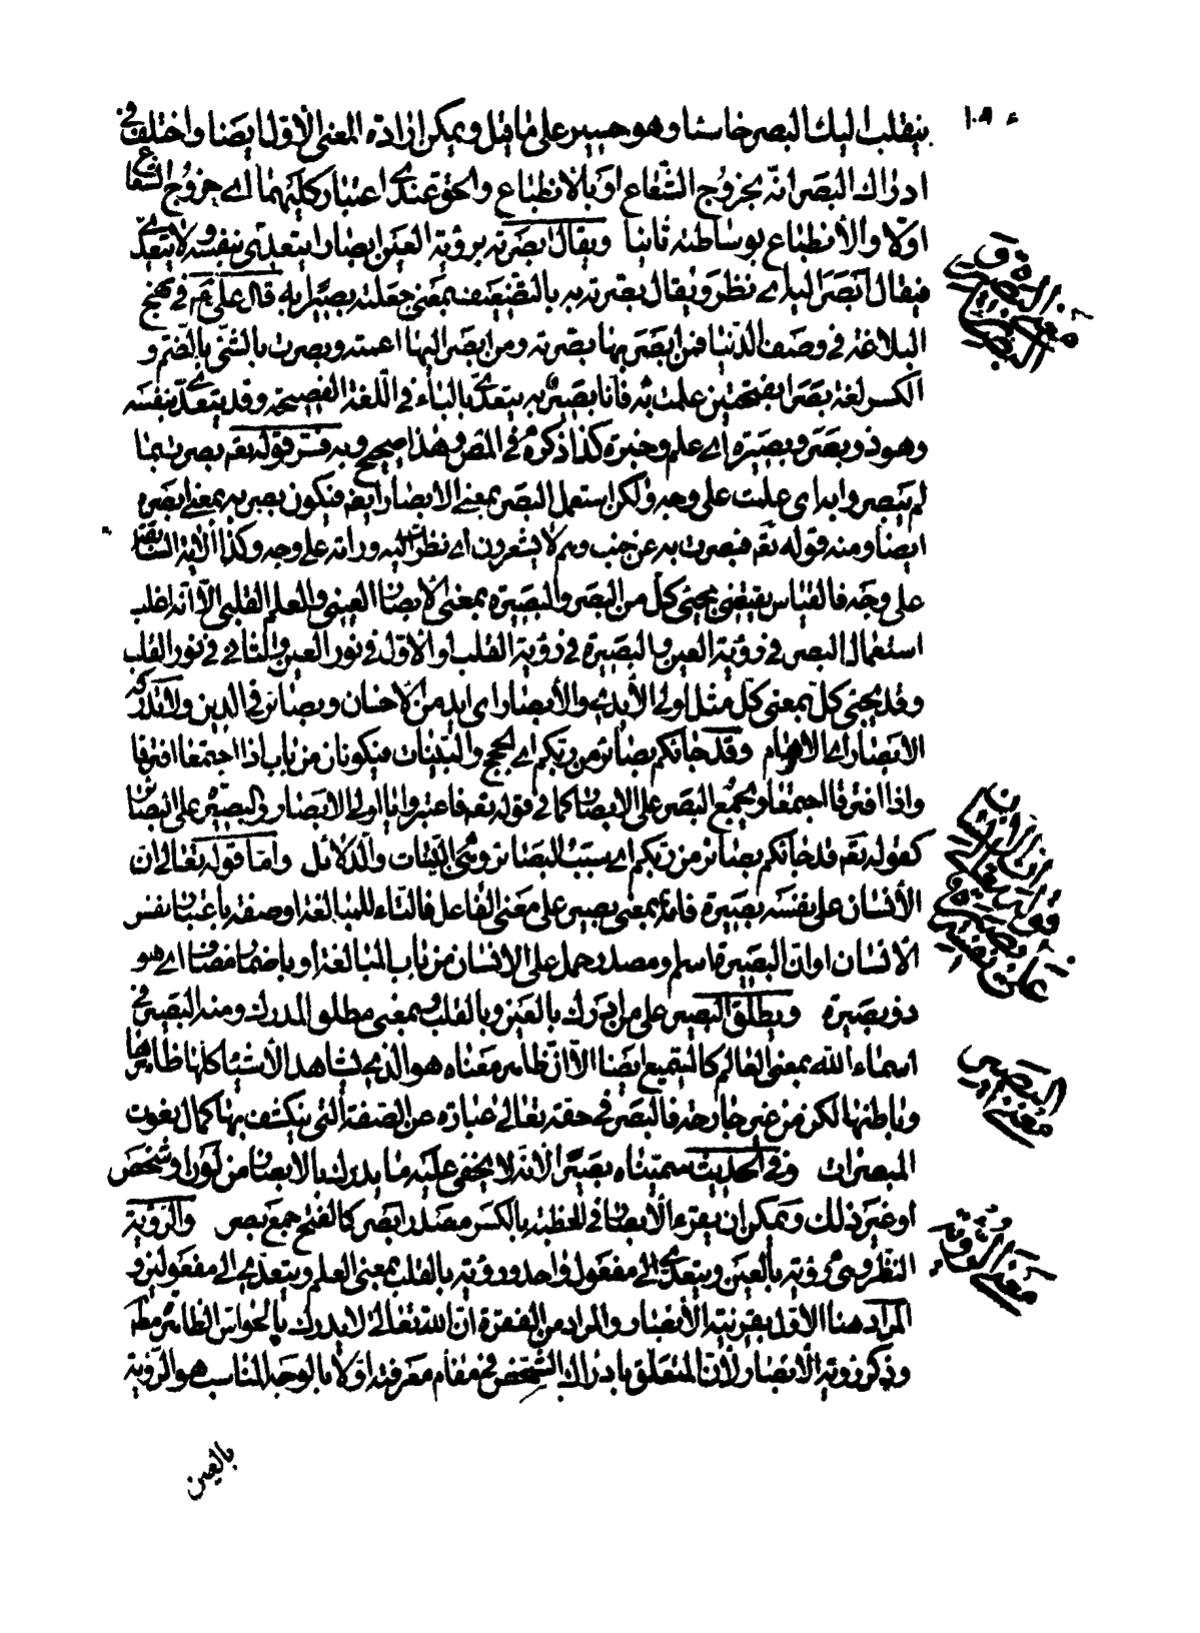 ١٠٩
ينقلب اليك البصر خاسئا وهو حسير على ما قيل ويمكن ارادة المعنى الاول ايضا واختلف في
ادراك البصر انه بخروج الشعاع او بالانطباع والحق عندي اعتبار كليهما اي خروج الشعاع
اولا والانطباع بوساطته ثانيا ويقال ابصرته برؤية العين ابصارا يتعدى بنفسه ولا يتعدى
فيقال ابصر اليه اي نظر ويقال بصرته به بالتضعيف بمعنى جعلته بصيرا به قال علي ع في نهج
البلاغة في وصف الدنيا فمن ابصر بها بصرته ومن ابصر اليها اعمته وبصرت بالشئ بالضم و
الكسر لغة بصرا بفتحتين علمت به فانا بصير به يتعدى بالباء في اللغة الفصيحة وقد يتعدى بنفسه
وهو ذو بصر وبصيرة اي علم وخبرة كذا ذكره في المص وهذا صحيح وبه فسر قوله تعم بصرت بما
لم يبصروا به اي علمت على وجه ولكن استعمل البصر بمعنى الابصار ايضا فيكون بصر به بمعنى ابصره
ايضا ومنه قوله تعم فبصرت به عن جنب وهم لا يشعرون اي نظرت اليه وراته على وجه وكذا الآية السابقة
على وجه فالقياس يقتضي مجئ كل من البصر والبصيرة بمعنى الابصار العيني والعلم القلبي الا انه اغلب
استعمال البصر في رؤية العين والبصيرة في رؤية القلب او الاول في نور العين والثاني في نور القلب
وقد يجئ كل بمعنى كل مثل اولي الايدي والابصار اي ايد من الاحسان وبصائر في الدين ولا تدركه
الابصار اي الاوهام وقد جائكم بصائر من ربكم اي الحجج والبينات فيكونان من باب اذا اجتمعا افترقا
واذا افترقا اجتمعا ويجمع البصر على الابصار كما في قوله تعم فاعتبروا يا اولي الابصار والبصيرة على البصائر
كقوله تعم قد جائكم بصائر من ربكم اي سبب للبصائر وهي البينات والدلائل واما قوله تعالى ان
الانسان على نفسه بصيرة فانه بمعنى بصير على معنى الفاعل فالتاء للمبالغة او صفة باعتبار نفس
الانسان او ان البصيرة اسم او مصدر حمل على الانسان من باب المبالغة او باضمار مضاف اي هو
ذو بصيرة ويطلق البصير على من ادرك بالعين وبالقلب وبمعنى مطلق المدرك ومنه البصير في
اسماء الله بمعنى العالم كالسميع ايضا الا ان ظاهر معناه هو الذي يشاهد الاشياء كلها ظاهرها
وباطنها لكن من غير جارحة فالبصر في حقه تعالى عبارة عن الصفة التي ينكشف بها كمال نعوت
المبصرات وفي الحديث سميناه بصيرا لانه لا يخفى عليه ما يدرك بالابصار من لون او شخص
او غير ذلك ويمكن ان يقرء الابصار في الخطبة بالكسر مصدر ابصر كالفتح جمع بصر والرؤية
النظر وهي رؤية بالعين ويتعدى الى مفعول واحد ورؤية بالقلب بمعنى العلم ويتعدى الى مفعولين و
المراد هنا الاول بقرينة الابصار والمراد من الفقرة ان الله تعالى لا يدرك بالحواس الظاهرة مطلقا
وذكر رؤية الابصار لان المتعلق بادراك الشخص في مقام معرفته اولا بالوجه المناسب هو الرؤية
بالعين
معنى البصيرة و البصر
قوله تعالى
على نفسه بصيرة
معنى البصير
معنى الرؤية